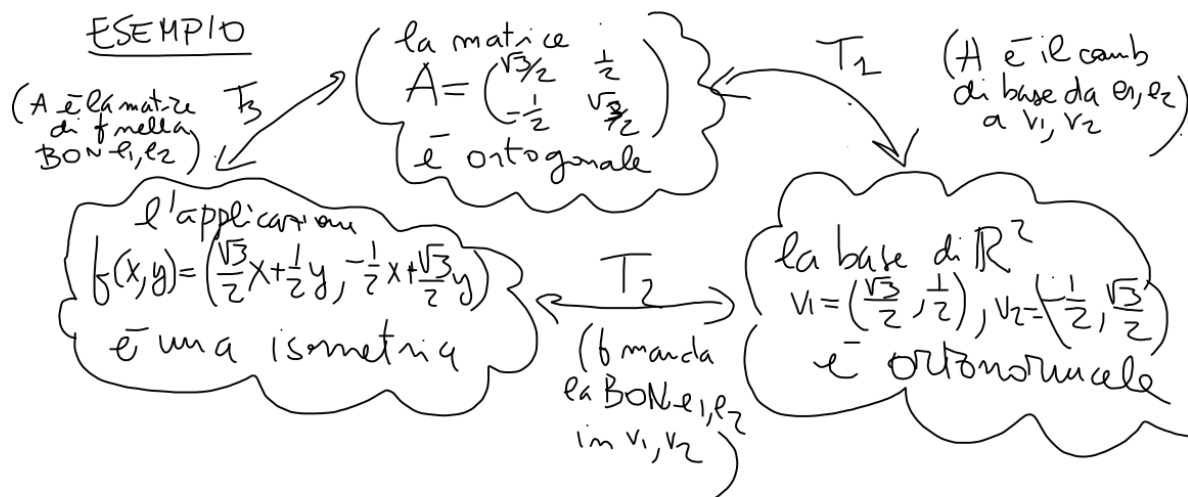 ESEMPIO
(A è la matrice
di f nella
BON e1, e2)
T3
(la matrice
A = (√3/2 1/2
-1/2 √3/2)
è ortogonale
T1
(A è il camb
di base da e1, e2
a v1, v2)
l'applicazione
f(x,y) = (√3/2 x + 1/2 y, -1/2 x + √3/2 y)
è una isometria
T2
(f manda
la BON e1, e2
in v1, v2)
la base di ℝ²
v1 = (√3/2, 1/2), v2 = (-1/2, √3/2)
è ortonormale